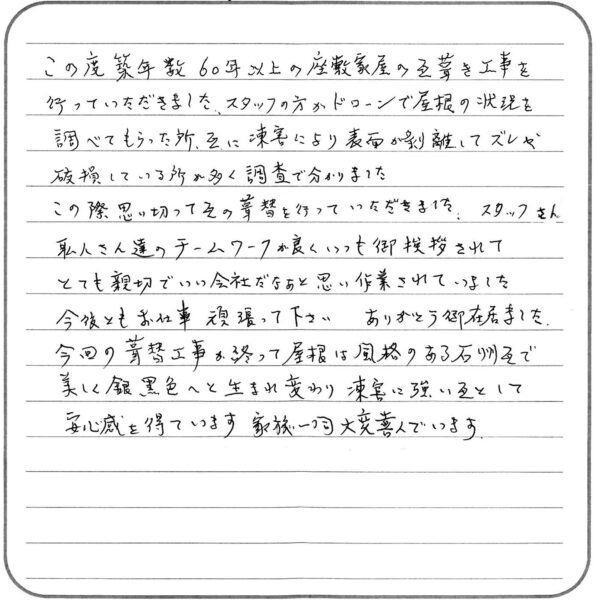 この度築年数60年以上の座敷家屋の瓦葺き工事を
行っていただきました、スタッフの方がドローンで屋根の状況を
調べてもらった所、瓦に凍害により表面が剥離してズレや
破損している所が多く調査で分かりました
この際思い切って瓦の葺替を行っていただきました、スタッフさん
職人さん達のチームワークが良くいつも御挨拶されて
とても親切でいい会社だなあと思い作業されていました
今後ともお仕事 頑張って下さい ありがとう御在居ました.
今回の葺替工事が終って屋根は風格のある石州瓦で
美しく銀黒色へと生まれ変わり凍害に強い瓦として
安心感を得ています 家族一同大変喜んでいます.